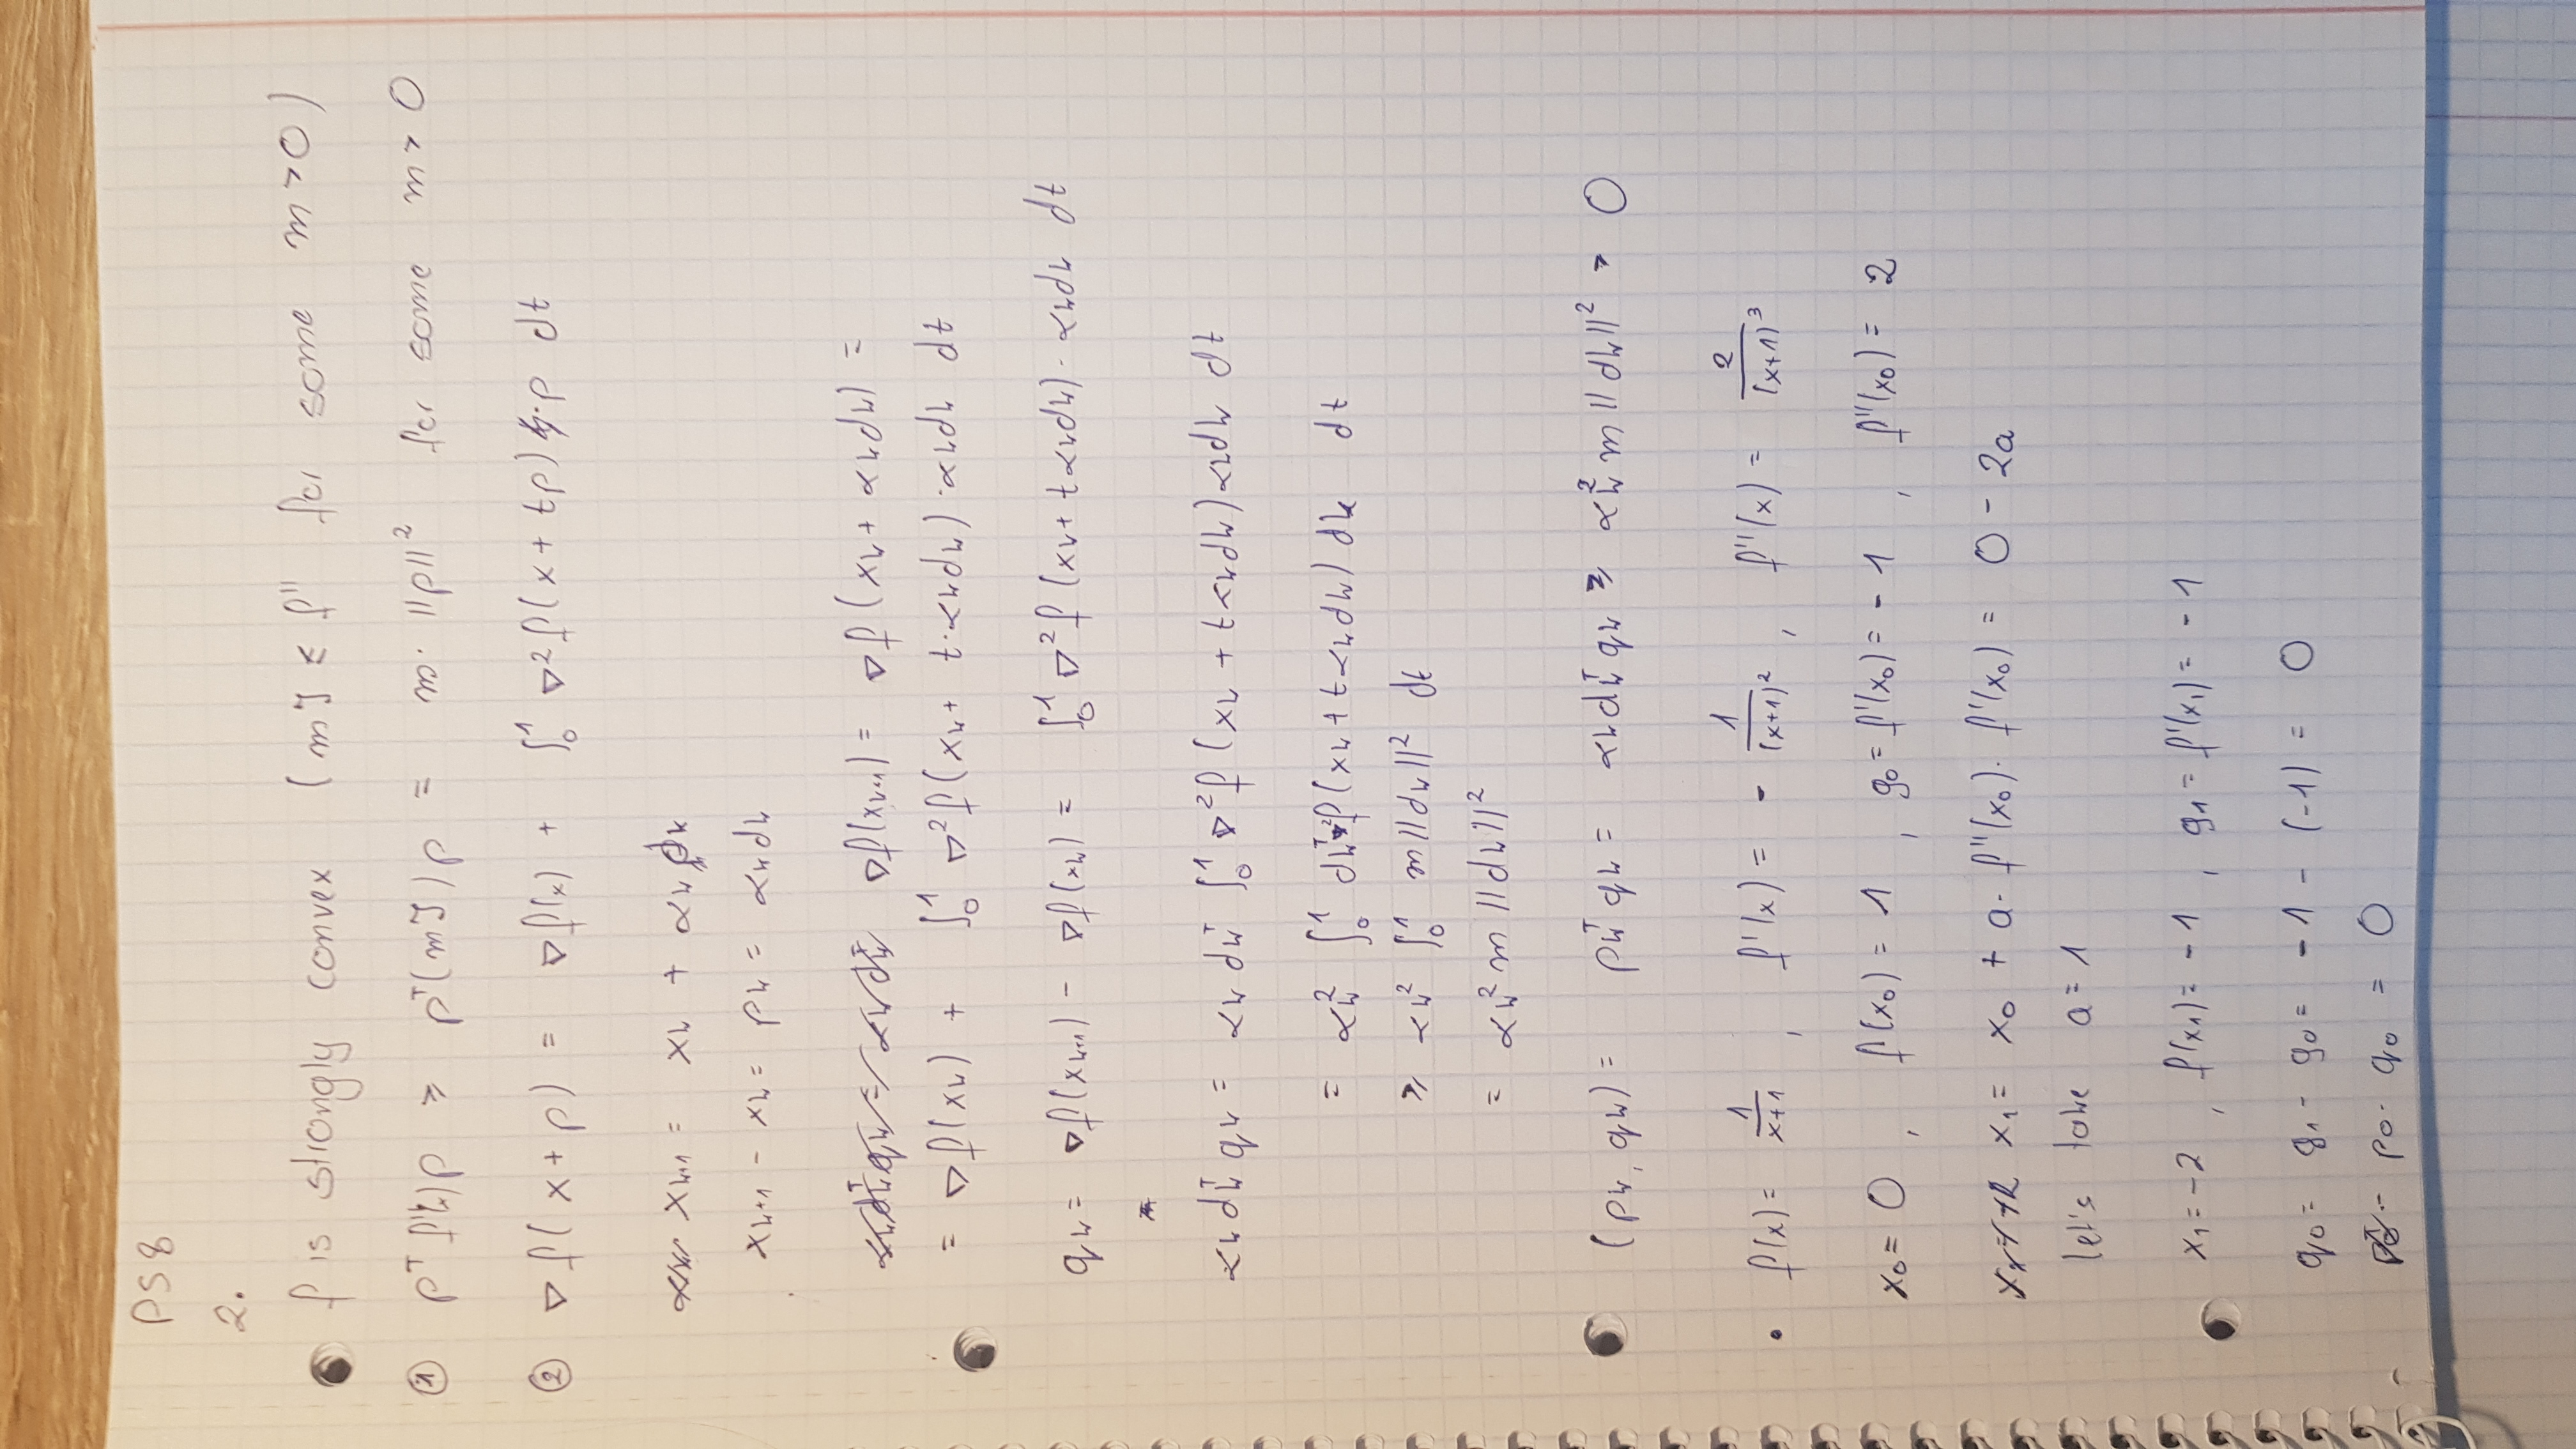 PS 8
2.
f is strongly convex (mI ≤ f'' for some m > 0)
① pᵀ f''(x) p ≥ pᵀ(mI)p = m·||p||² for some m > 0
② ∇f(x+p) = ∇f(x) + ∫₀¹ ∇²f(x+tp)·p dt
xₖ₊₁ = xₖ + αₖdₖ
xₖ₊₁ - xₖ = pₖ = αₖdₖ
∇f(xₖ₊₁) = ∇f(xₖ + αₖdₖ) =
= ∇f(xₖ) + ∫₀¹ ∇²f(xₖ + t·αₖdₖ)·αₖdₖ dt
qₖ = ∇f(xₖ₊₁) - ∇f(xₖ) = ∫₀¹ ∇²f(xₖ + tαₖdₖ)·αₖdₖ dt
αₖdₖᵀqₖ = αₖdₖᵀ ∫₀¹ ∇²f(xₖ + tαₖdₖ)αₖdₖ dt
= αₖ² ∫₀¹ dₖᵀ∇²f(xₖ + tαₖdₖ)dₖ dt
≥ αₖ² ∫₀¹ m||dₖ||² dt
= αₖ² m||dₖ||²
(pₖ, qₖ) = pₖᵀqₖ = αₖdₖᵀqₖ ≥ αₖ² m||dₖ||² > 0
• f(x) = 1/(x+1) , f'(x) = - 1/(x+1)² , f''(x) = 2/(x+1)³
x₀ = 0 , f(x₀) = 1 , g₀ = f'(x₀) = -1 , f''(x₀) = 2
x₁ = x₀ + a·f''(x₀)·f'(x₀) = 0 - 2a
let's take a = 1
x₁ = -2 , f(x₁) = -1 , g₁ = f'(x₁) = -1
q₀ = g₁ - g₀ = -1 - (-1) = 0
p₀·q₀ = 0